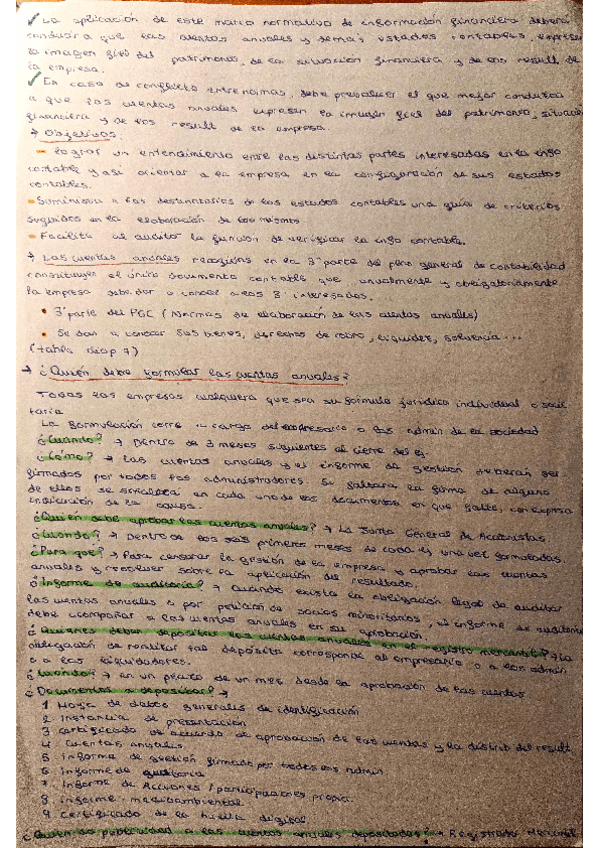 ✓ La aplicación de este marco normativo de información financiera deberá
conducir a que las cuentas anuales y demás estados contables, expresen
la imagen fiel del patrimonio, de la situación financiera y de los result de
la empresa.
✓ En caso de conflicto entre normas, debe prevalecer el que mejor conduzca
a que las cuentas anuales expresen la imagen fiel del patrimonio, situación
financiera y de los result de la empresa.
→ Objetivos:
- Lograr un entendimiento entre las distintas partes interesadas en la info
contable y así orientar a la empresa en la configuración de sus estados
contables.
- Suministra a los destinatarios de los estados contables una guía de criterios
seguidos en la elaboración de los mismos
- Facilita al auditor la función de verificar la info contable.
→ Las cuentas anuales recogidas en la 3ª parte del plan general de contabilidad
constituyen el único documento contable que anualmente y obligatoriamente
la empresa debe dar a conocer a los 3º interesados.
• 3ª parte del PGC (Normas de elaboración de las cuentas anuales)
• Se dan a conocer sus bienes, derechos de cobro, liquidez, solvencia...
(tabla diap 7)
→ ¿Quién debe formular las cuentas anuales?
Todas las empresas cualquiera que sea su fórmula jurídica individual o socie
taria
La formulación corre a cargo del empresario o los admin de la sociedad
¿Cuándo? → Dentro de 3 meses siguientes al cierre del ej.
¿Cómo? → Las cuentas anuales y el informe de gestión deberán ser
firmados por todos los administradores. Si faltara la firma de alguno
de ellos se señalará en cada uno de los documentos en que falte, con expresa
indicación de la causa.
¿Quién debe aprobar las cuentas anuales? → La Junta General de Accionistas
¿Cuándo? → Dentro de los seis primeros meses de cada ej una vez formuladas.
¿Para qué? → Para censurar la gestión de la empresa y aprobar las cuentas
anuales y resolver sobre la aplicación del resultado.
¿Informe de auditoría? → Cuando exista la obligación legal de auditar
las cuentas anuales o por petición de socios minoritarios, el informe de auditoría
debe acompañar a las cuentas anuales en su aprobación.
¿Quiénes deben depositar las cuentas anuales en el registro mercantil? → La
obligación de realizar tal depósito corresponde al empresario o a los admin
o a los liquidadores.
¿Cuándo? → en un plazo de un mes desde la aprobación de las cuentas
¿Documentos a depositar? →
1 Hoja de datos generales de identificación
2. Instancia de presentación
3 Certificado de acuerdo de aprobación de las cuentas y la distrib del result
4. Cuentas anuales
5. Informe de gestión firmado por todos los admin.
6 Informe de auditoría
7. Informe de Acciones / participaciones propia.
8. informe medioambiental
9. Certificado de la huella digital
¿Quién da publicidad a las cuentas anuales depositadas? → Registrado Mercantil